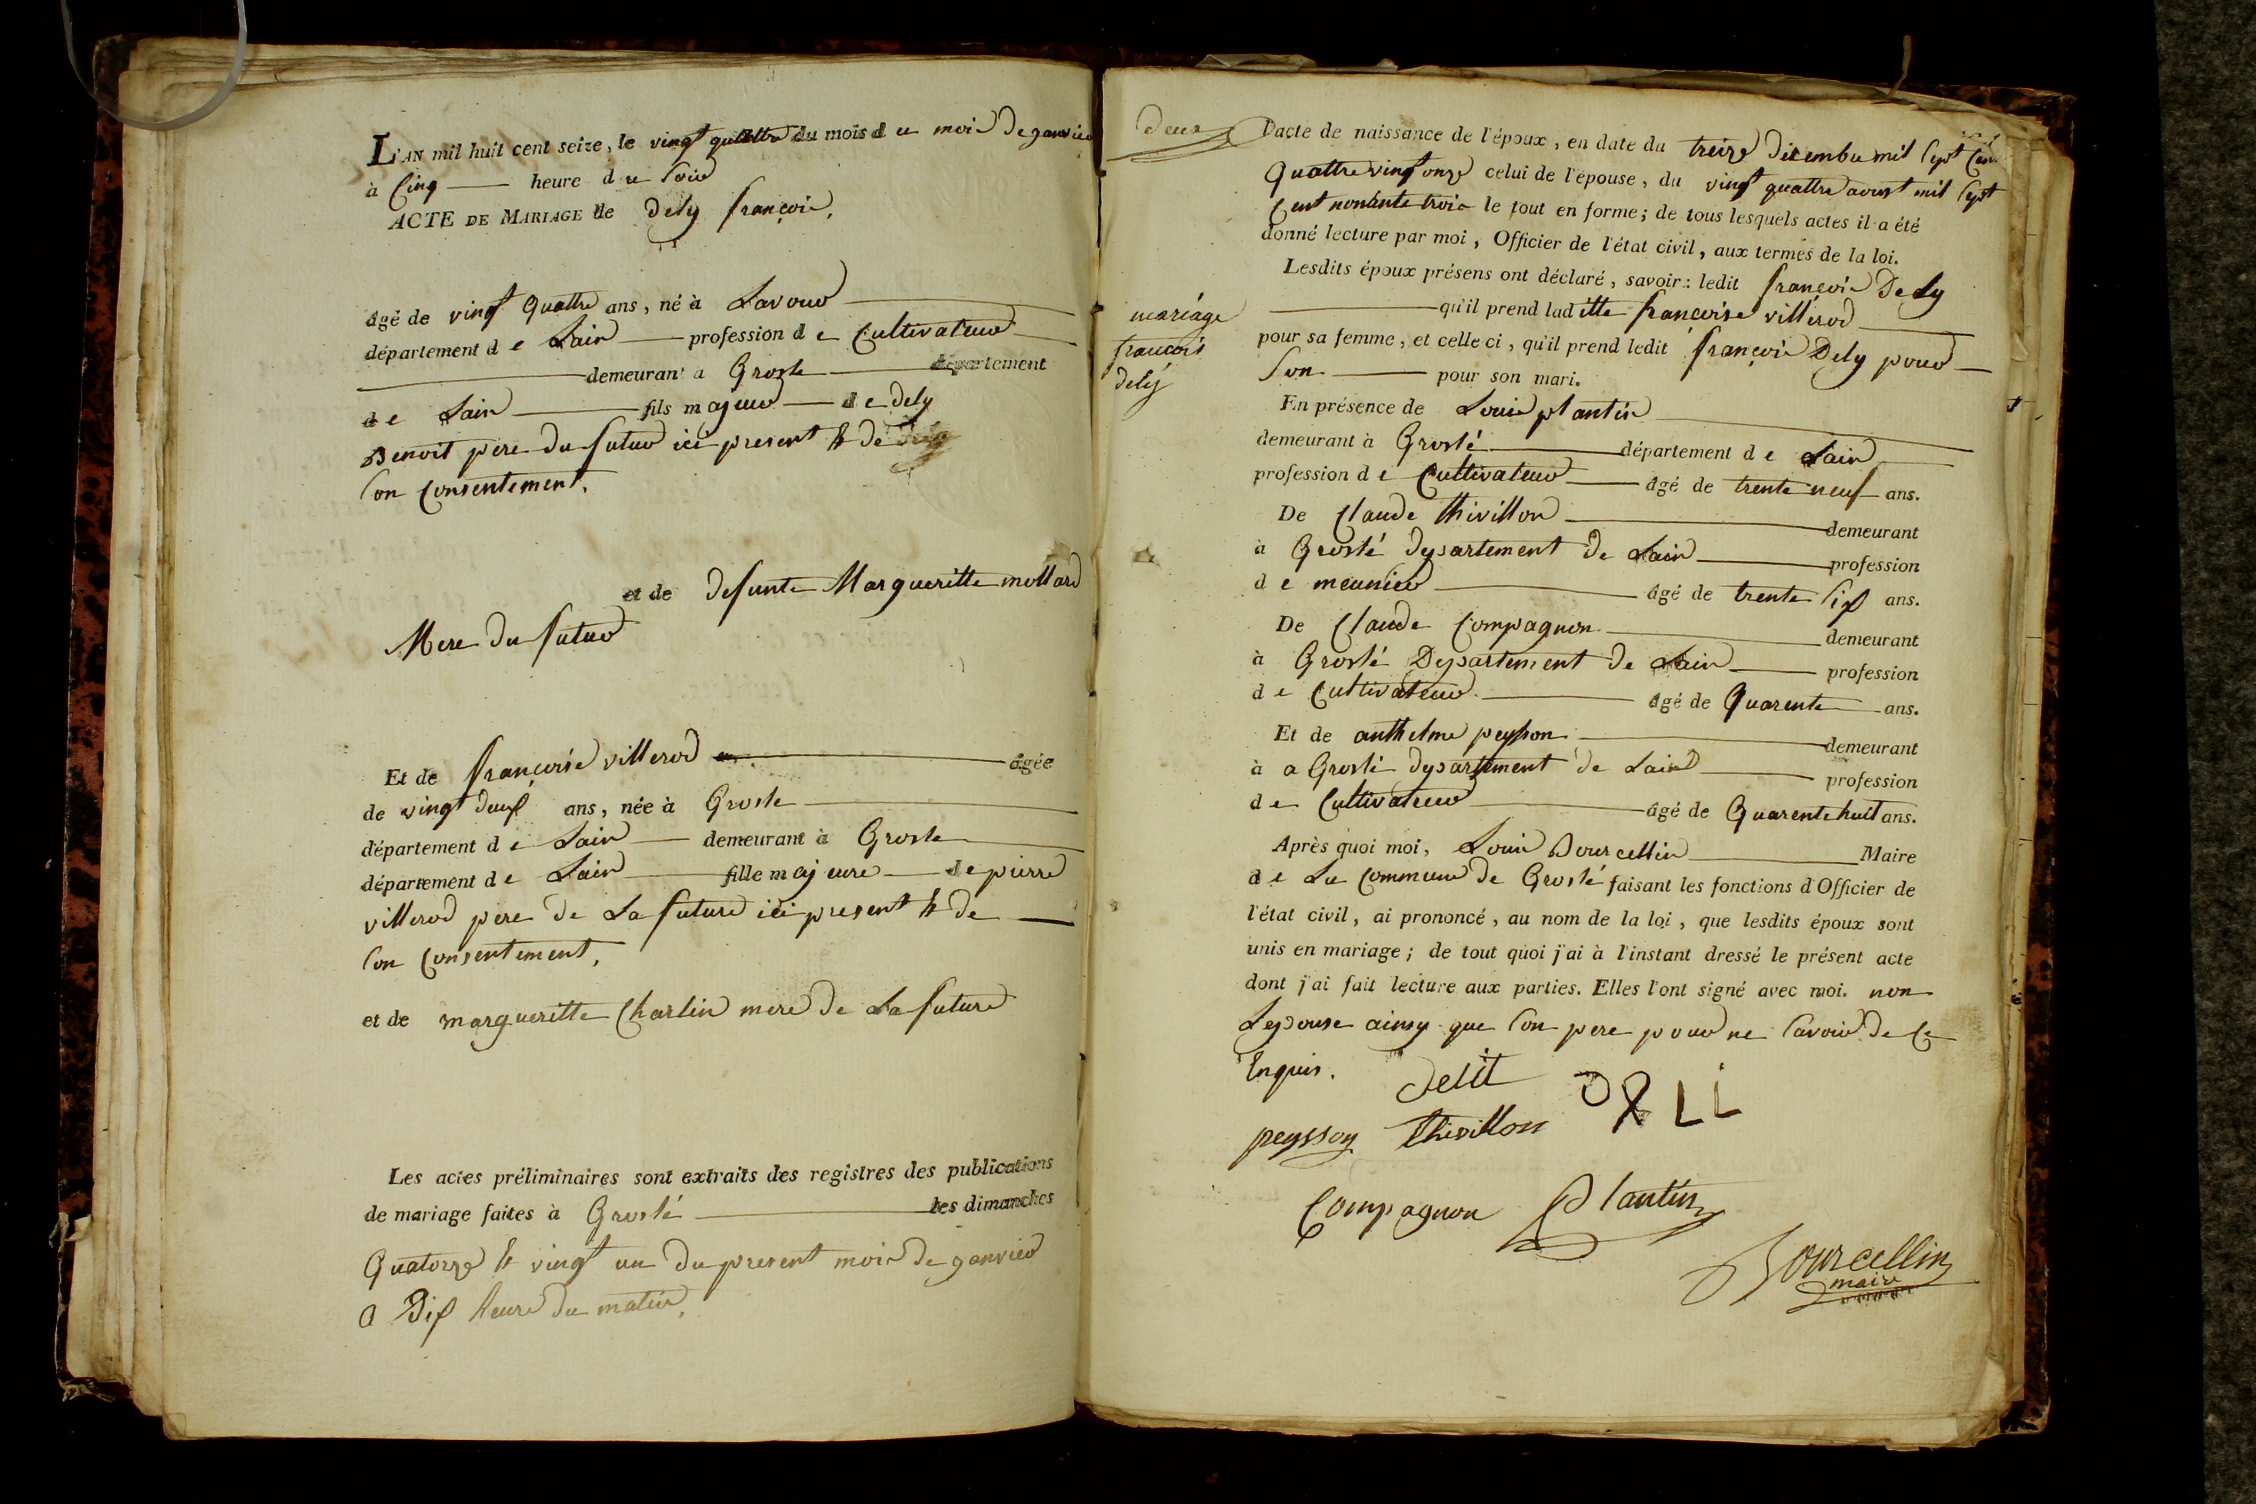 L'AN mil huit cent seize, le vingt quattre du mois d u mois de janvier
à Cinq heure d u soir
ACTE DE MARIAGE de Dely françois,
âgé de vingt quattre ans, né à Lavour
département d e Lain profession d e Cultivateur
demeurant a Grosle département
d e Lain fils majeur d e dely
Benoit pere du futur ici present & de
son Consentement,
et de defunte Margueritte mollard
Mere du futur
Et de françoise villerod âgée
de vingt deux ans, née à Grosle
département d e Lain demeurant à Grosle
département d e Lain fille majeure d e pierre
villerod pere de La future ici present & de
son Consentement,
et de margueritte Charlin mere de La future
Les actes préliminaires sont extraits des registres des publications
de mariage faites à Groslé les dimanches
Quatorze & vingt un du present mois de janvier
a Dix heure du matin,
deux
mariage
francois
dely
L'acte de naissance de l'époux, en date du treize decembre mil sept Cent
Quattre vingt onze celui de l'épouse, du vingt quattre aoust mil sept
Cent nonante trois le tout en forme; de tous lesquels actes il a été
donné lecture par moi, Officier de l'état civil, aux termes de la loi.
Lesdits époux présens ont déclaré, savoir: ledit françois Dely
qu'il prend laditte françoise villerod
pour sa femme, et celle ci, qu'il prend ledit françois Dely pour
son pour son mari.
En présence de Louis plantin
demeurant à Groslé département d e Lain
profession d e Cultivateur âgé de trente neuf ans.
De Claude thivillon demeurant
à Groslé departement de Lain profession
d e meunier âgé de trente six ans.
De Claude Compagnon demeurant
à Groslé Departement de Lain profession
d e Cultivateur âgé de Quarente ans.
Et de anthelme peysson demeurant
à a Groslé departement de Lain profession
d e Cultivateur âgé de Quarente huit ans.
Après quoi moi, Louis Bourcellin Maire
d e La Commune de Groslé faisant les fonctions d'Officier de
l'état civil, ai prononcé, au nom de la loi, que lesdits époux sont
unis en mariage; de tout quoi j'ai à l'instant dressé le présent acte
dont j'ai fait lecture aux parties. Elles l'ont signé avec moi. non
Lepouse ainsy que son pere pour ne savoir de Ce
Enquis.
Delit DELI
peysson thivillon
Compagnon Plantin
Bourcellin
maire